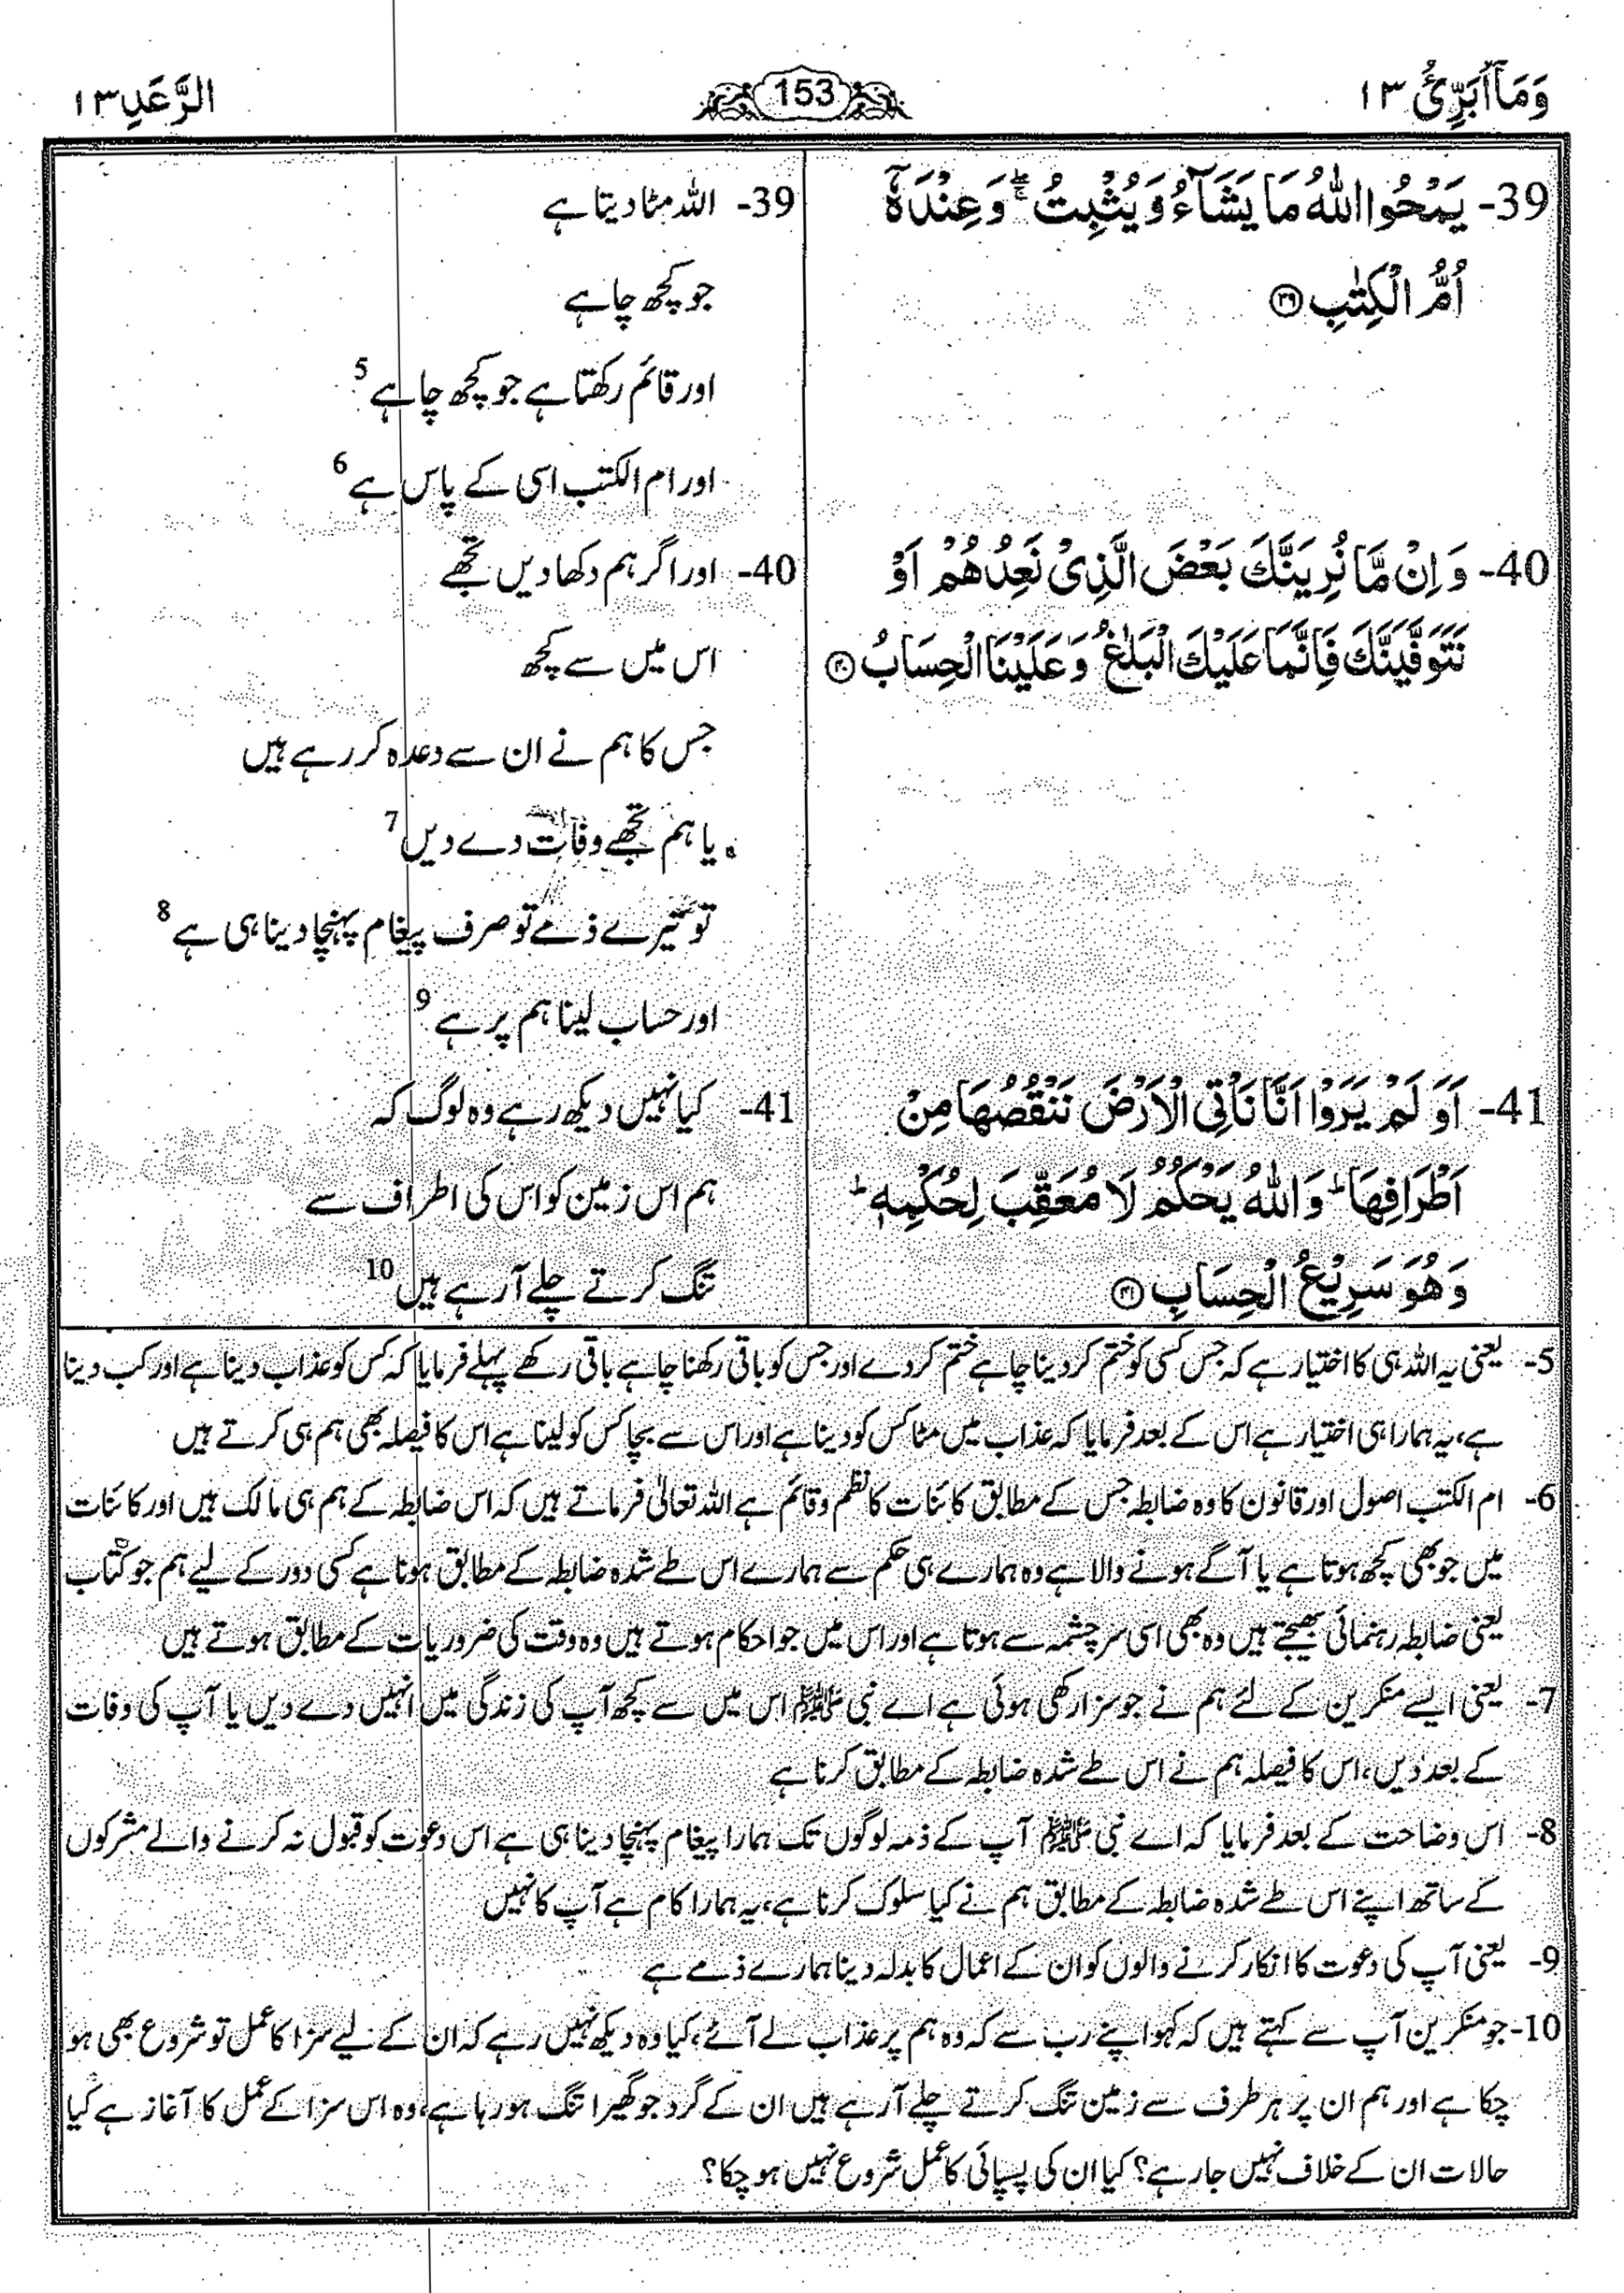 وَمَآ اُبَرِّئُ ١٣
153
الرَّعَدِ ١٣
39- يَمْحُوا اللّٰهُ مَا يَشَآءُ وَ يُثْبِتُ ۖۚ وَعِنْدَهٗٓ
اُمُّ الْكِتٰبِ ﴿٣٩﴾
40- وَ اِنْ مَّا نُرِيَنَّكَ بَعْضَ الَّذِىْ نَعِدُهُمْ اَوْ
نَتَوَفَّيَنَّكَ فَاِنَّمَا عَلَيْكَ الْبَلٰغُ وَ عَلَيْنَا الْحِسَابُ ﴿٤٠﴾
41- اَوَ لَمْ يَرَوْا اَنَّا نَاْتِى الْاَرْضَ نَنْقُصُهَا مِنْ
اَطْرَافِهَا ؕ وَ اللّٰهُ يَحْكُمُ لَا مُعَقِّبَ لِحُكْمِهٖ ؕ
وَ هُوَ سَرِيْعُ الْحِسَابِ ﴿٤١﴾
39- اللہ مٹا دیتا ہے
جو کچھ چاہے
اور قائم رکھتا ہے جو کچھ چاہے 5
اور ام الکتب اسی کے پاس ہے 6
40- اور اگر ہم دکھا دیں تجھے
اس میں سے کچھ
جس کا ہم نے ان سے وعدہ کر رہے ہیں
یا ہم تجھے وفات دے دیں 7
تو تیرے ذمے تو صرف پیغام پہنچا دینا ہی ہے 8
اور حساب لینا ہم پر ہے 9
41- کیا نہیں دیکھ رہے وہ لوگ کہ
ہم اس زمین کو اس کی اطراف سے
تنگ کرتے چلے آ رہے ہیں 10
5- یعنی یہ اللہ ہی کا اختیار ہے کہ جس کسی کو ختم کر دینا چاہے ختم کر دے اور جس کو باقی رکھنا چاہے باقی رکھے پہلے فرمایا کہ کس کو عذاب دینا ہے اور کب دینا
ہے، یہ ہمارا ہی اختیار ہے اس کے بعد فرمایا کہ عذاب میں مٹا کس کو دینا ہے اور اس سے بچا کس کو لینا ہے اس کا فیصلہ بھی ہم ہی کرتے ہیں
6- ام الکتب اصول اور قانون کا وہ ضابطہ جس کے مطابق کائنات کا نظم و قائم ہے اللہ تعالیٰ فرماتے ہیں کہ اس ضابطہ کے ہم ہی مالک ہیں اور کائنات
میں جو بھی کچھ ہوتا ہے یا آگے ہونے والا ہے وہ ہمارے ہی حکم سے ہمارے اس طے شدہ ضابطہ کے مطابق ہوتا ہے کسی دور کے لیے ہم جو کتاب
یعنی ضابطہ رہنمائی بھیجتے ہیں وہ بھی اسی سرچشمہ سے ہوتا ہے اور اس میں جو احکام ہوتے ہیں وہ وقت کی ضروریات کے مطابق ہوتے ہیں
7- یعنی ایسے منکرین کے لئے ہم نے جو سزا رکھی ہوئی ہے اے نبی ﷺ اس میں سے کچھ آپ کی زندگی میں انہیں دے دیں یا آپ کی وفات
کے بعد دیں، اس کا فیصلہ ہم نے اس طے شدہ ضابطہ کے مطابق کرنا ہے
8- اس وضاحت کے بعد فرمایا کہ اے نبی ﷺ آپ کے ذمہ لوگوں تک ہمارا پیغام پہنچا دینا ہی ہے اس دعوت کو قبول نہ کرنے والے مشرکوں
کے ساتھ اپنے اس طے شدہ ضابطہ کے مطابق ہم نے کیا سلوک کرنا ہے، یہ ہمارا کام ہے آپ کا نہیں
9- یعنی آپ کی دعوت کا انکار کرنے والوں کو ان کے اعمال کا بدلہ دینا ہمارے ذمے ہے
10- جو منکرین آپ سے کہتے ہیں کہ کہو اپنے رب سے کہ وہ ہم پر عذاب لے آئے، کیا وہ دیکھ نہیں رہے کہ ان کے لیے سزا کا عمل تو شروع بھی ہو
چکا ہے اور ہم ان پر ہر طرف سے زمین تنگ کرتے چلے آ رہے ہیں ان کے گرد جو گھیرا تنگ ہو رہا ہے، وہ اس سزا کے عمل کا آغاز ہے کیا
حالات ان کے خلاف نہیں جا رہے؟ کیا ان کی پسپائی کا عمل شروع نہیں ہو چکا؟